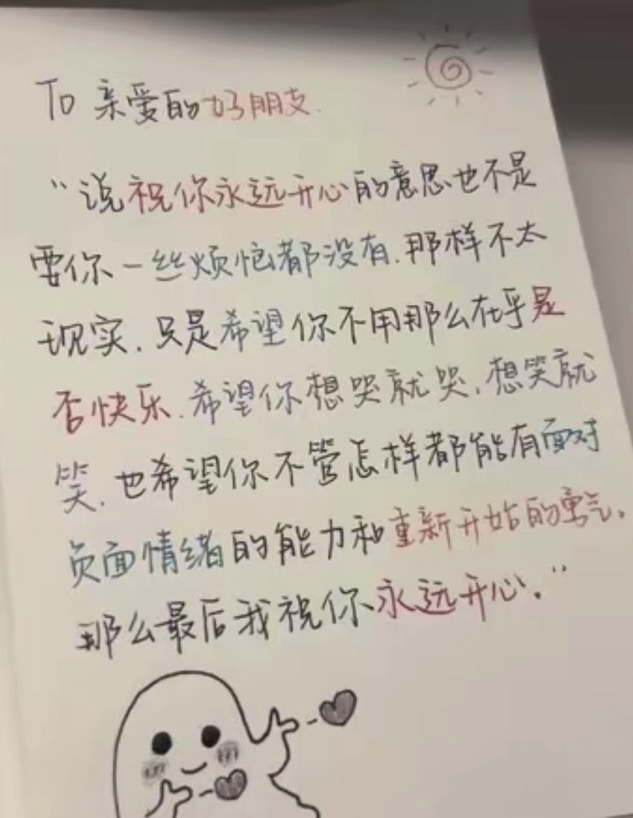 To 亲爱的好朋友.
“说祝你永远开心的意思也不是
要你一丝烦恼都没有.那样不太
现实.只是希望你不用那么在乎是
否快乐.希望你想哭就哭.想笑就
笑.也希望你不管怎样都能有面对
负面情绪的能力和重新开始的勇气。
那么最后我祝你永远开心.”